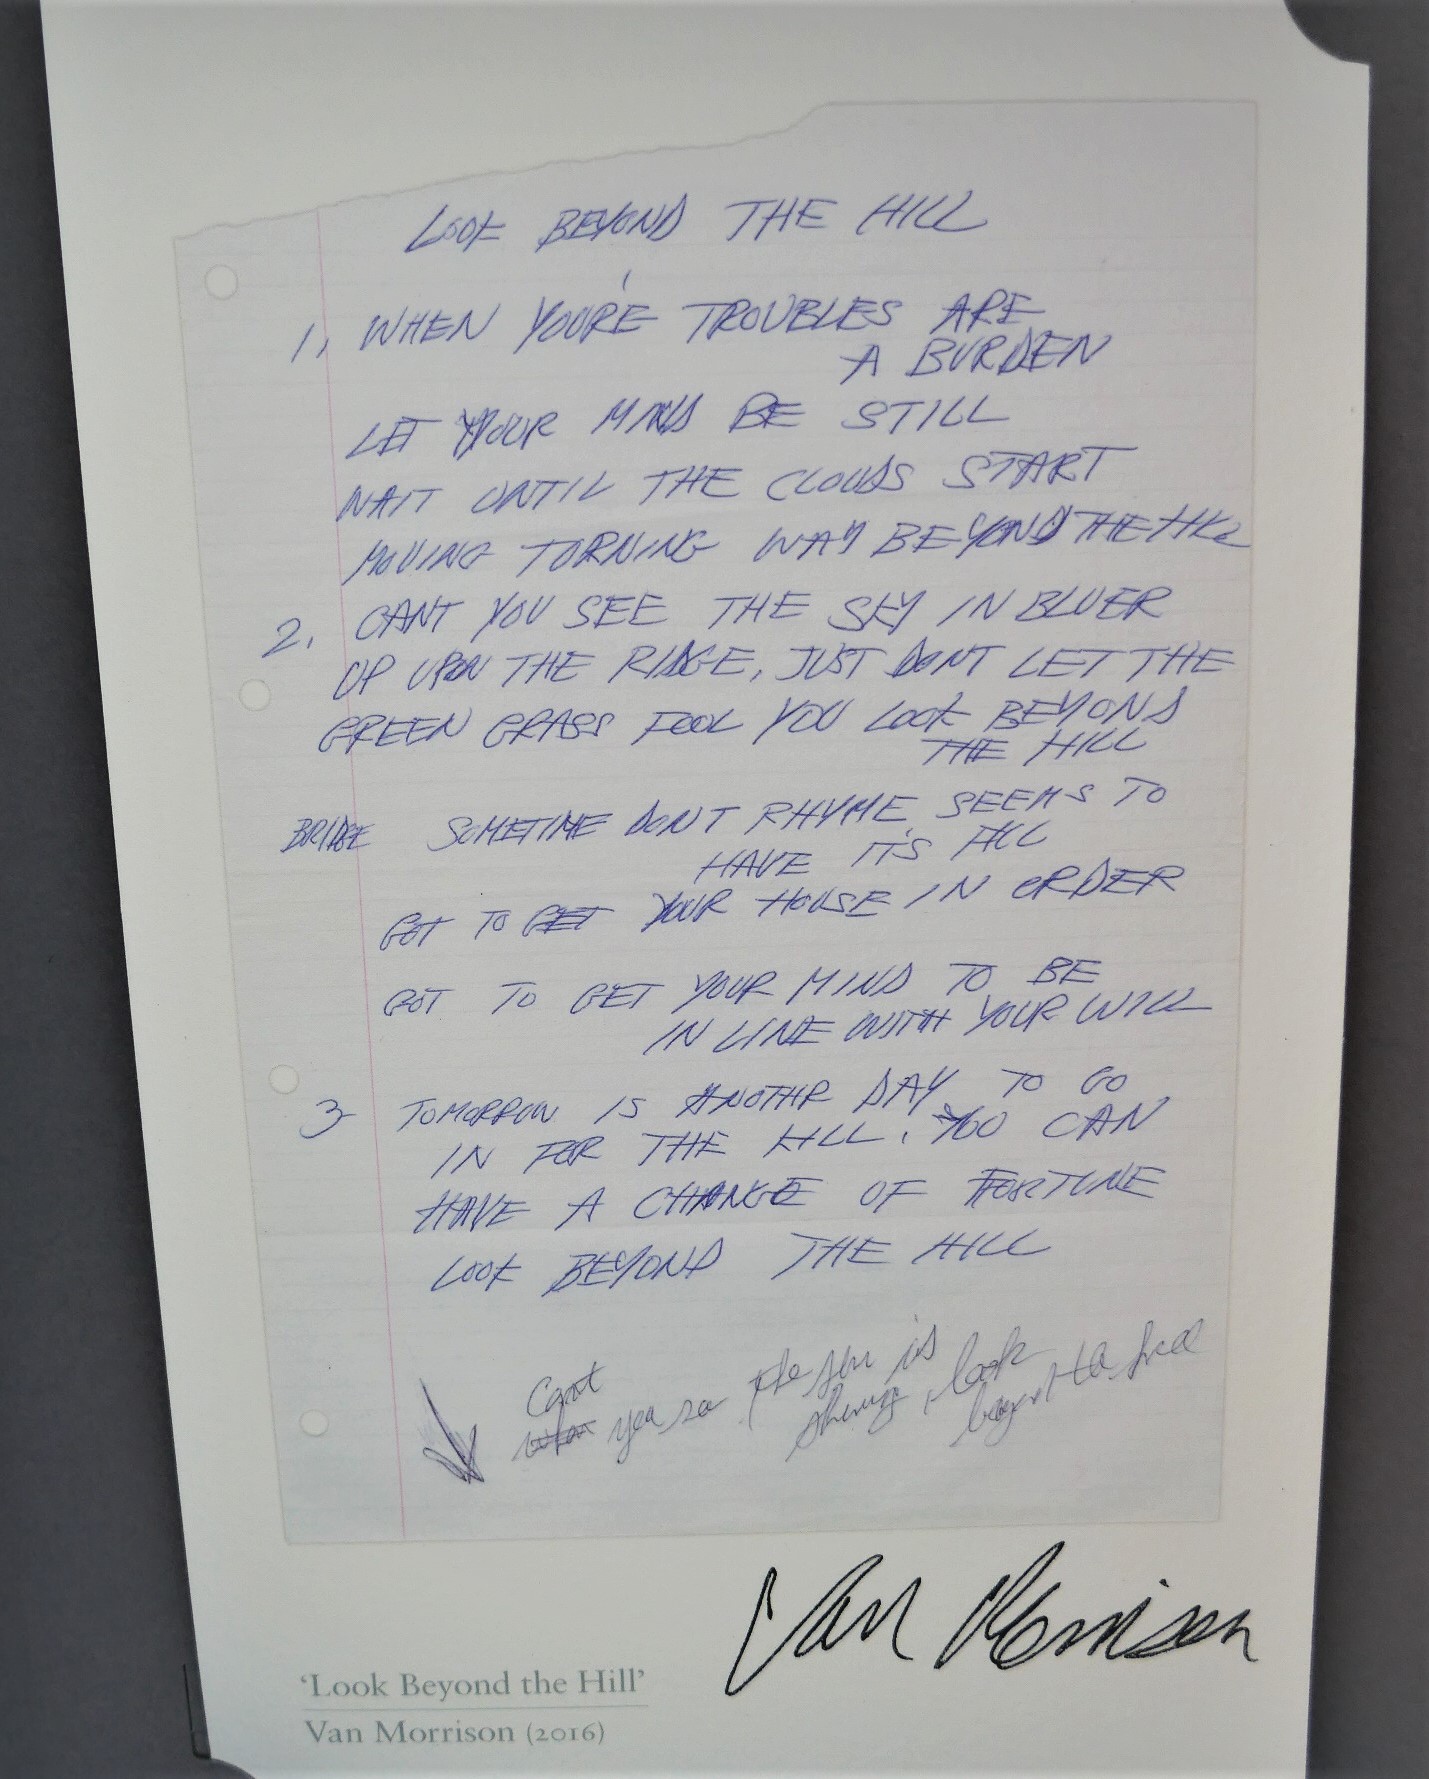 LOOK BEYOND THE HILL
1, WHEN YOU'RE TROUBLES ARE
A BURDEN
LET YOUR MIND BE STILL
WAIT UNTIL THE CLOUDS START
MOVING TURNING WAY BEYOND THE HILL
2. CANT YOU SEE THE SKY IN BLUER
UP UPON THE RIDGE, JUST DONT LET THE
GREEN GRASS FOOL YOU LOOK BEYOND
THE HILL
BRIDGE SOMETIME DON'T RHYME, SEEMS TO
HAVE IT'S FILL
GOT TO GET YOUR HOUSE IN ORDER
GOT TO GET YOUR MIND TO BE
IN LINE WITH YOUR WILL
3- TOMORROW IS ANOTHR DAY TO GO
IN FOR THE KILL. YOU CAN
HAVE A CHANGE OF FORTUNE
LOOK BEYOND THE HILL
Cant
you see the sun is
shining, look
beyond the hill
Van Morrison
‘Look Beyond the Hill’
Van Morrison (2016)